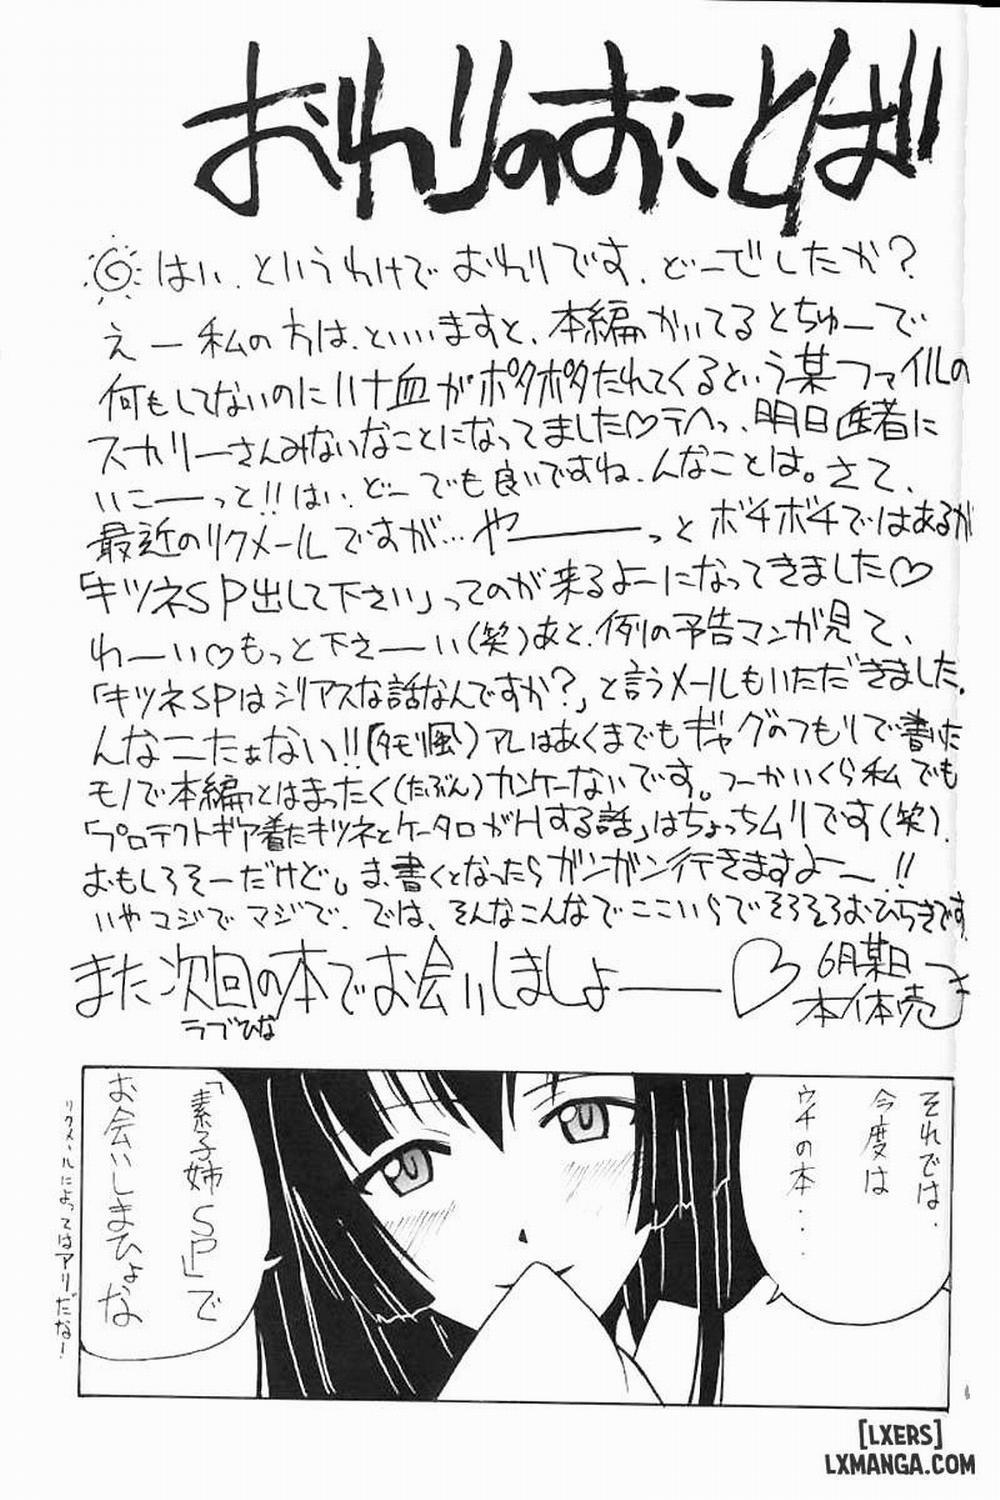 おわりのおことば
はい、というわけでおわりです、どーでしたか？
えー私の方は、といいますと、本編かいてるとちゅーで
何もしてないのにハナ血がポタポタたれてくるという某ファイルの
スカリーさんみたいなことになってました♡テヘっ、明日医者に
いこーーっと!!はい、どーでも良いですね、んなことは。さて、
最近のリクメールですが…やーーーっとボチボチではあるが
「キツネSP出して下さい」ってのが来るよーになってきました♡
わーい♡もっと下さーい(笑)あと、例の予告マンガ見て、
「キツネSPはシリアスな話なんですか？」と言うメールもいただきました。
んなこたぁない!!(タモリ風)アレはあくまでもギャグのつもりで書いた
モノで本編とはまったく(たぶん)カンケーないです。つーかいくら私でも
「プロテクトギア着たキツネとケータロがHする話」はちょっちムリです(笑)
おもしろそーだけど。ま、書くとなったらガンガン行きますよー!!
いやマジでマジで、では、そんなこんなでここいらでそろそろおひらきです。
また次回の本でお会いしましょーー♡
ラブひな
6月某日
本体売
それでは、
今度は
ウチの本...
「素子姉SP」で
お会いしまひょな
リクメールによってはアリだな!
[LXERS]
LXMANGA.COM